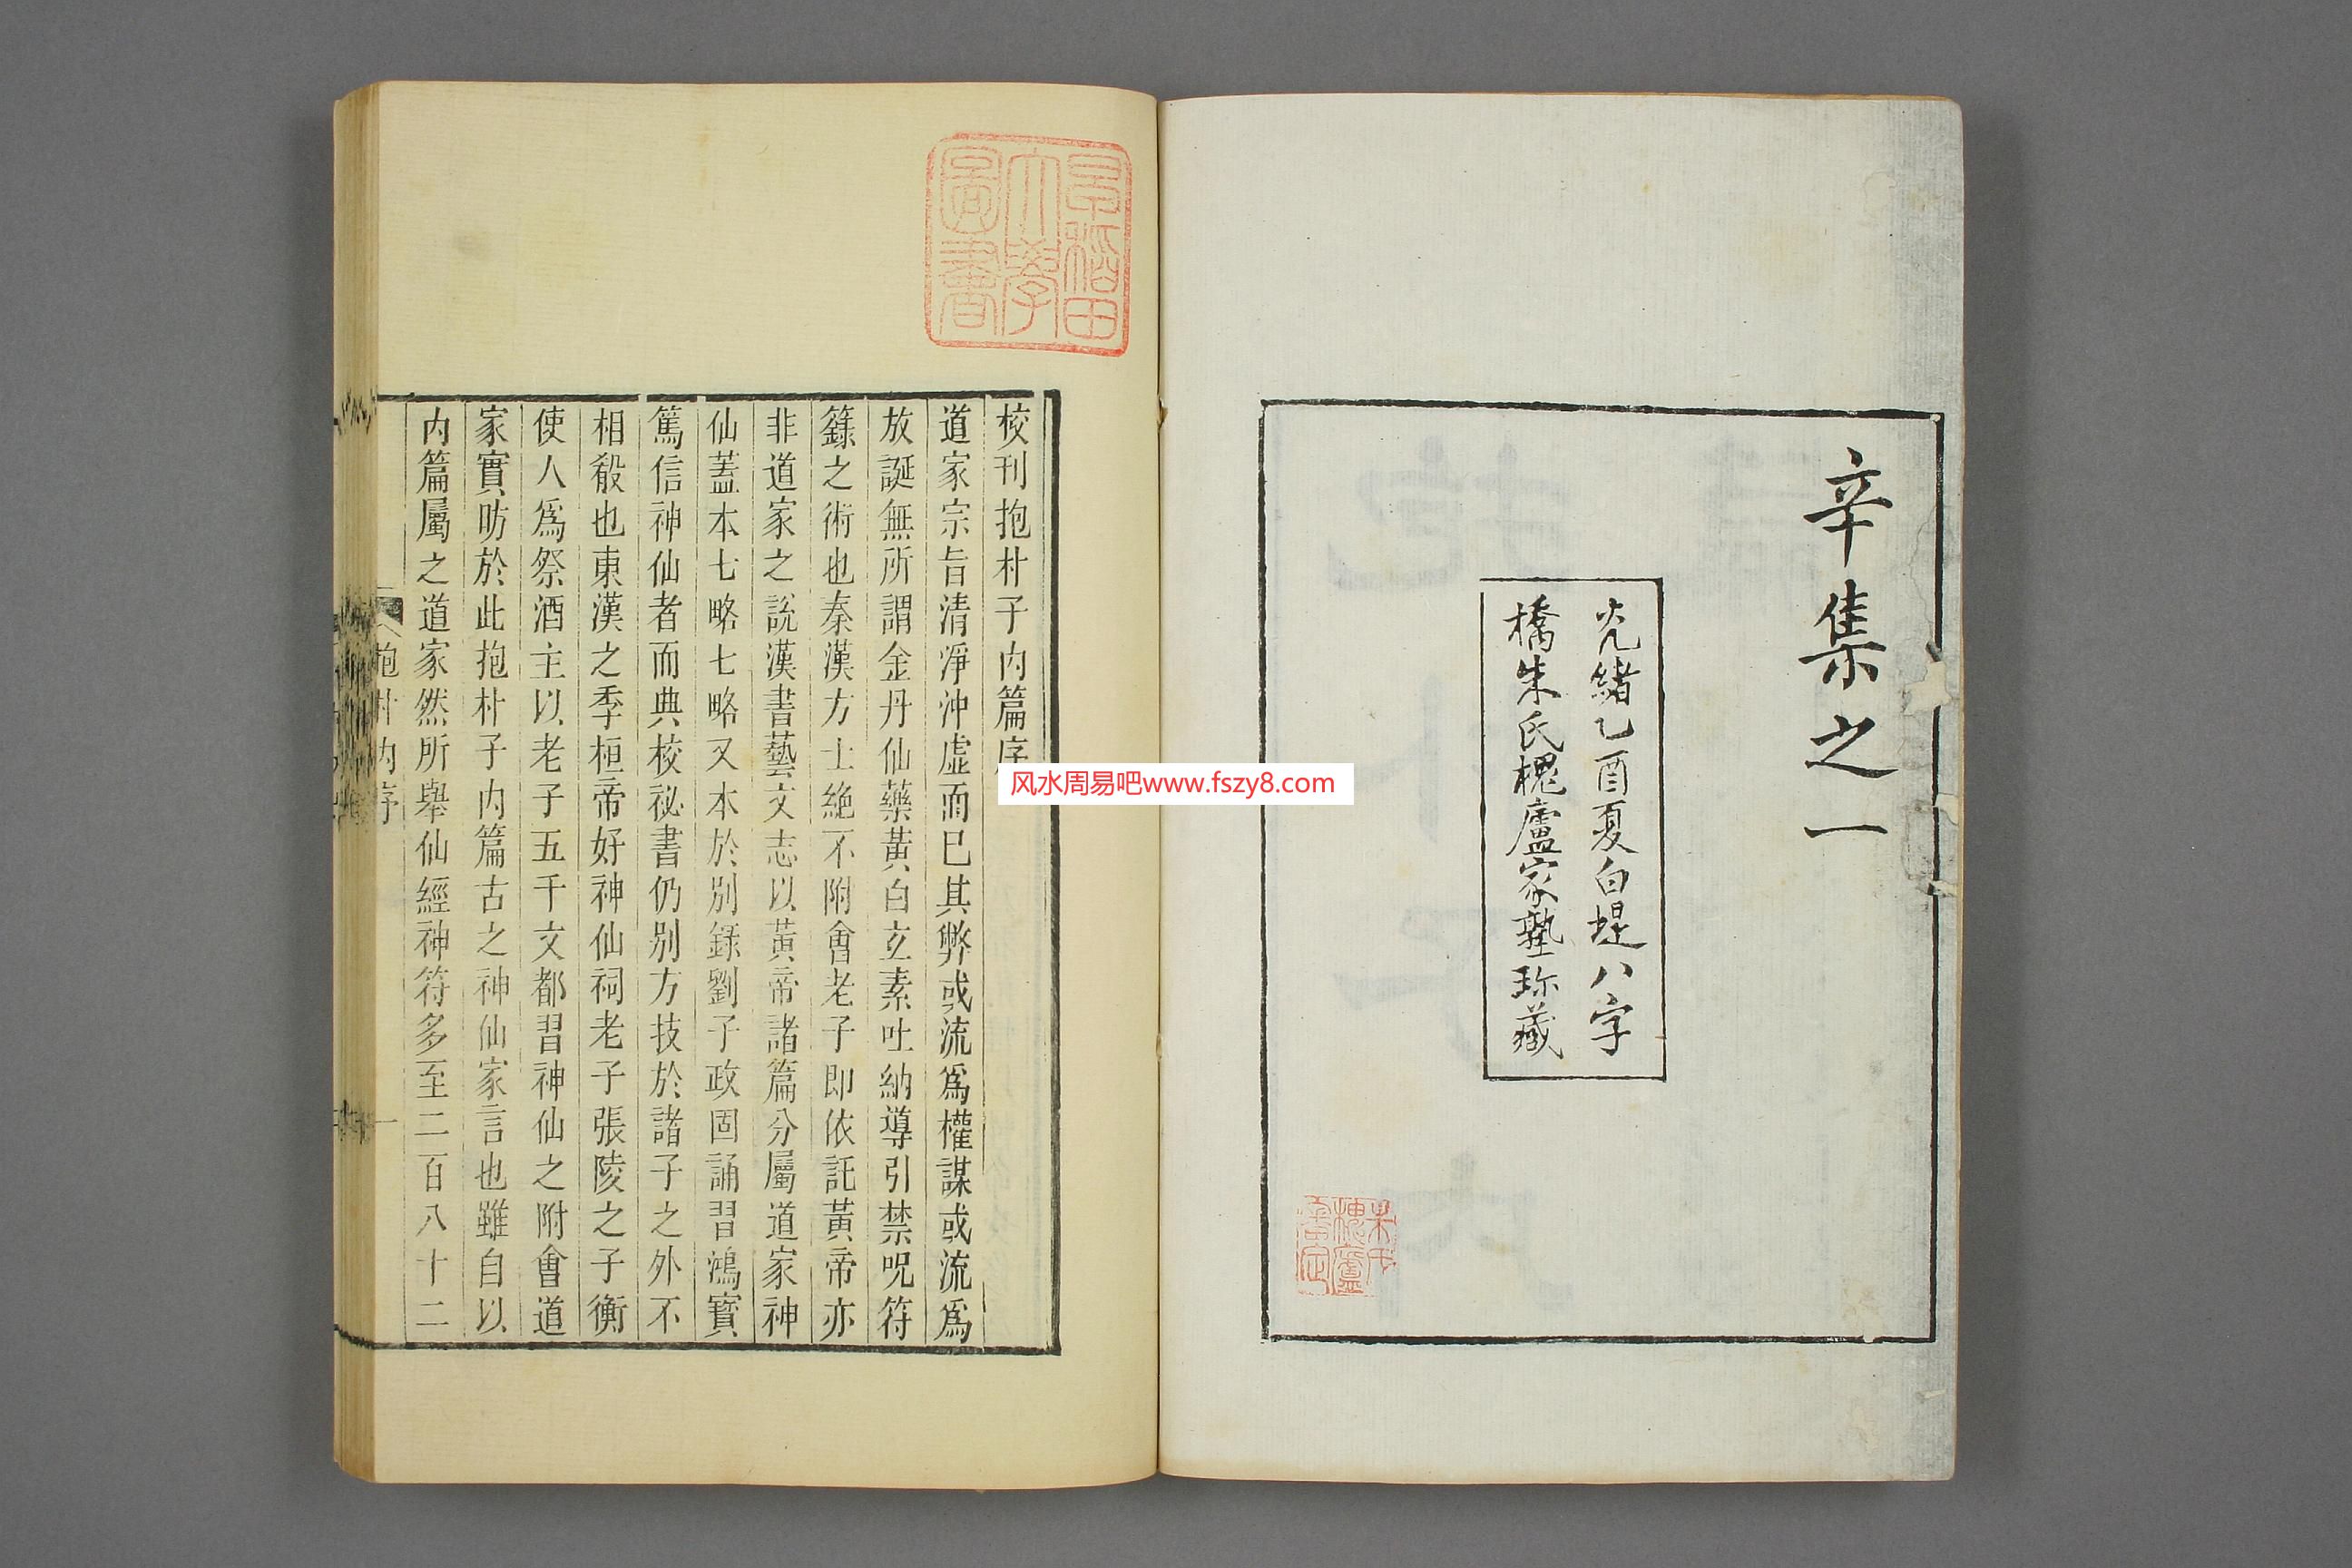 辛集之一
光緒乙酉夏白堤八字
橋朱氏槐廬家塾珍藏
朱氏
槐廬
審定
早稲田
大學
圖書
校刊抱朴子内篇序
道家宗旨清淨沖虛而已其弊或流爲權謀或流爲
放誕無所謂金丹仙藥黃白玄素吐納導引禁呪符
籙之術也秦漢方士絶不附會老子即依託黃帝亦
非道家之說漢書藝文志以黃帝諸篇分屬道家神
仙蓋本七略七略又本於別錄劉子政固誦習鴻寶
篤信神仙者而典校祕書仍別方技於諸子之外不
相殽也東漢之季桓帝好神仙祠老子張陵之子衡
使人爲祭酒主以老子五千文都習神仙之附會道
家實昉於此抱朴子内篇古之神仙家言也雖自以
内篇屬之道家然所舉仙經神符多至二百八十二
抱朴内序 一
风水周易吧www.fszy8.com